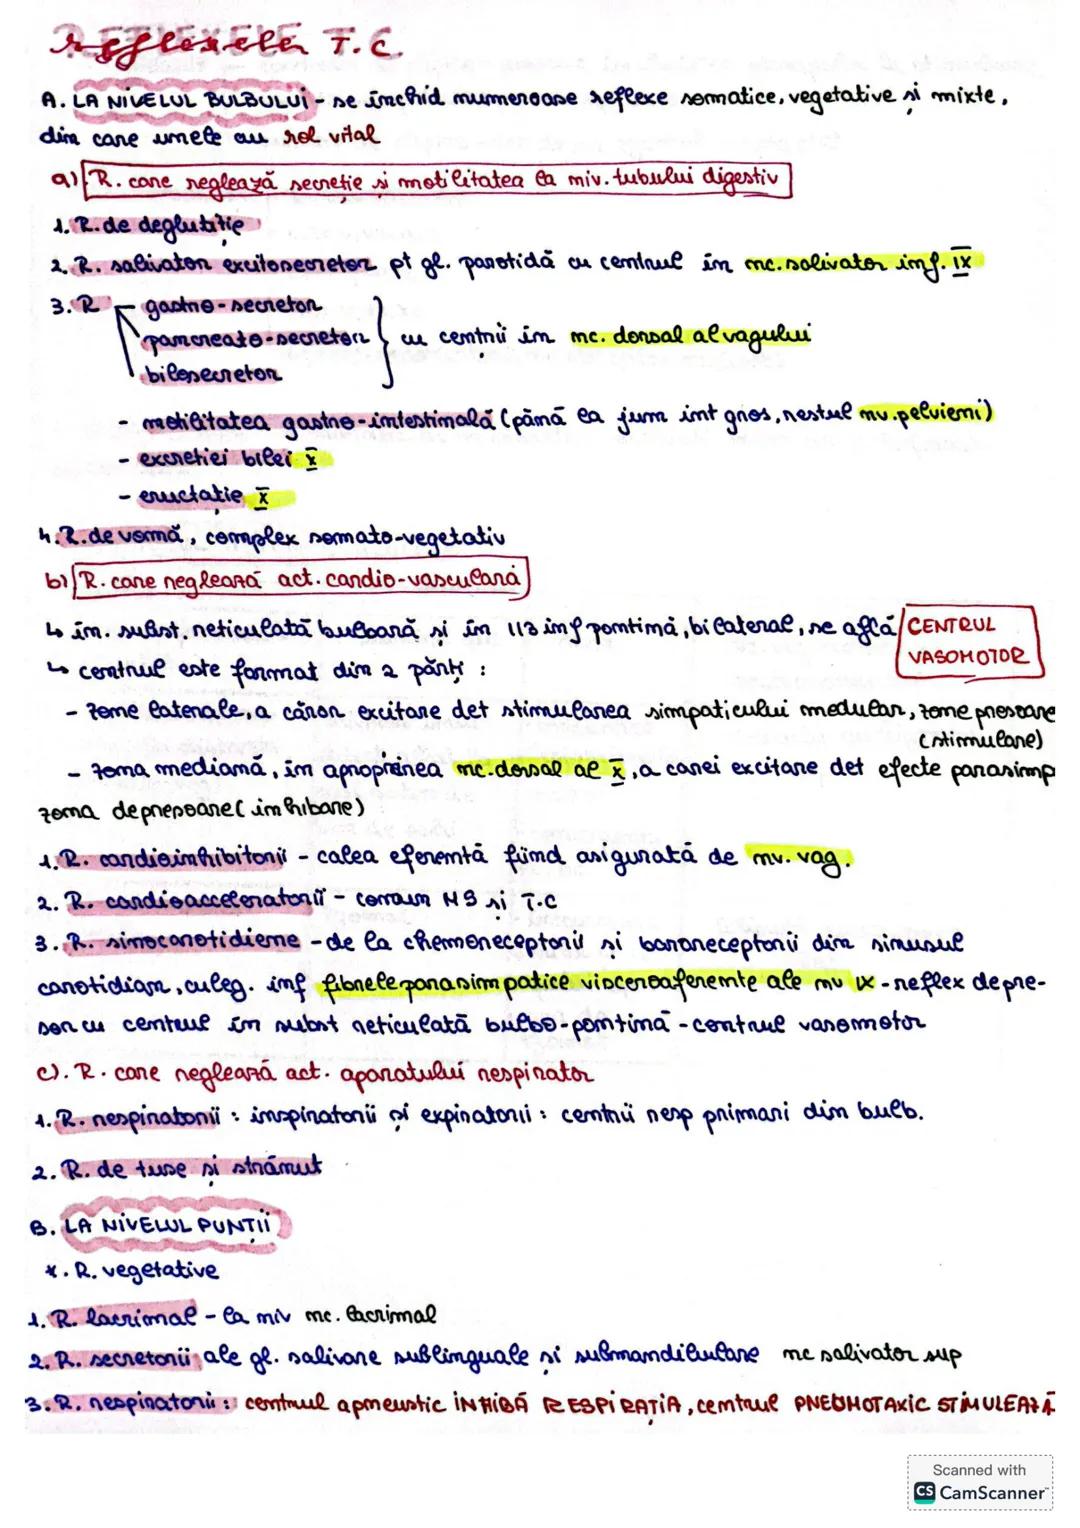 Reflexele T.C.
A. LA NIVELUL BULBULUI - se închid numeroase reflexe somatice, vegetative și mixte,
din care unele au rol vital
a) R. care reglează secreție și motilitatea la niv. tubului digestiv
1. R. de deglutiție
2. R. salivator excitosecretor pt gl. parotidă cu centrul în nc. salivator inf. IX
3. R gastro-secretor
pancreato-secretor } cu centrii în nc. dorsal al vagului
bilosecretor
- motilitatea gastro-intestinală (până la jum int gros, restul nv. pelvieni)
- excreției bilei X
- eructație X
4. R. de vomă, complex somato-vegetativ
b) R. care reglează act. cardio-vasculară
↳ în. subst. reticulată bulbară și în 1/3 inf pontină, bilateral, se află CENTRUL
VASOMOTOR
↳ centrul este format din 2 părți :
- zone laterale, a căror excitare det stimularea simpaticului medular, zone presoare
(stimulare)
- zona mediană, în apropierea nc. dorsal al X, a carei excitare det efecte parasimp
zona depresoare (inhibare)
1. R. cardioinhibitorii - calea eferentă fiind asigurată de nv. vag.
2. R. cardioacceleratorii - comun MS și T.C
3. R. sinocarotidiene - de la chemoreceptorii și baroreceptorii din sinusul
carotidian, culeg. inf fibrele parasimpatice visceroaferente ale nv IX - reflex depre-
sor cu centrul în subst reticulată bulbo-pontină - centrul vasomotor
c). R. care reglează act. aparatului respirator
1. R. respiratorii : inspiratorii și expiratorii : centrii resp primari din bulb.
2. R. de tuse și strănut
B. LA NIVELUL PUNȚII
*. R. vegetative
1. R. lacrimal - la niv nc. lacrimal
2. R. secretorii ale gl. salivare sublinguale și submandibulare nc salivator sup
3. R. respiratorii : centrul apneustic INHIBĂ RESPIRAȚIA, centrul PNEUMOTAXIC STIMULEAZĂ
Scanned with
CS CamScanner